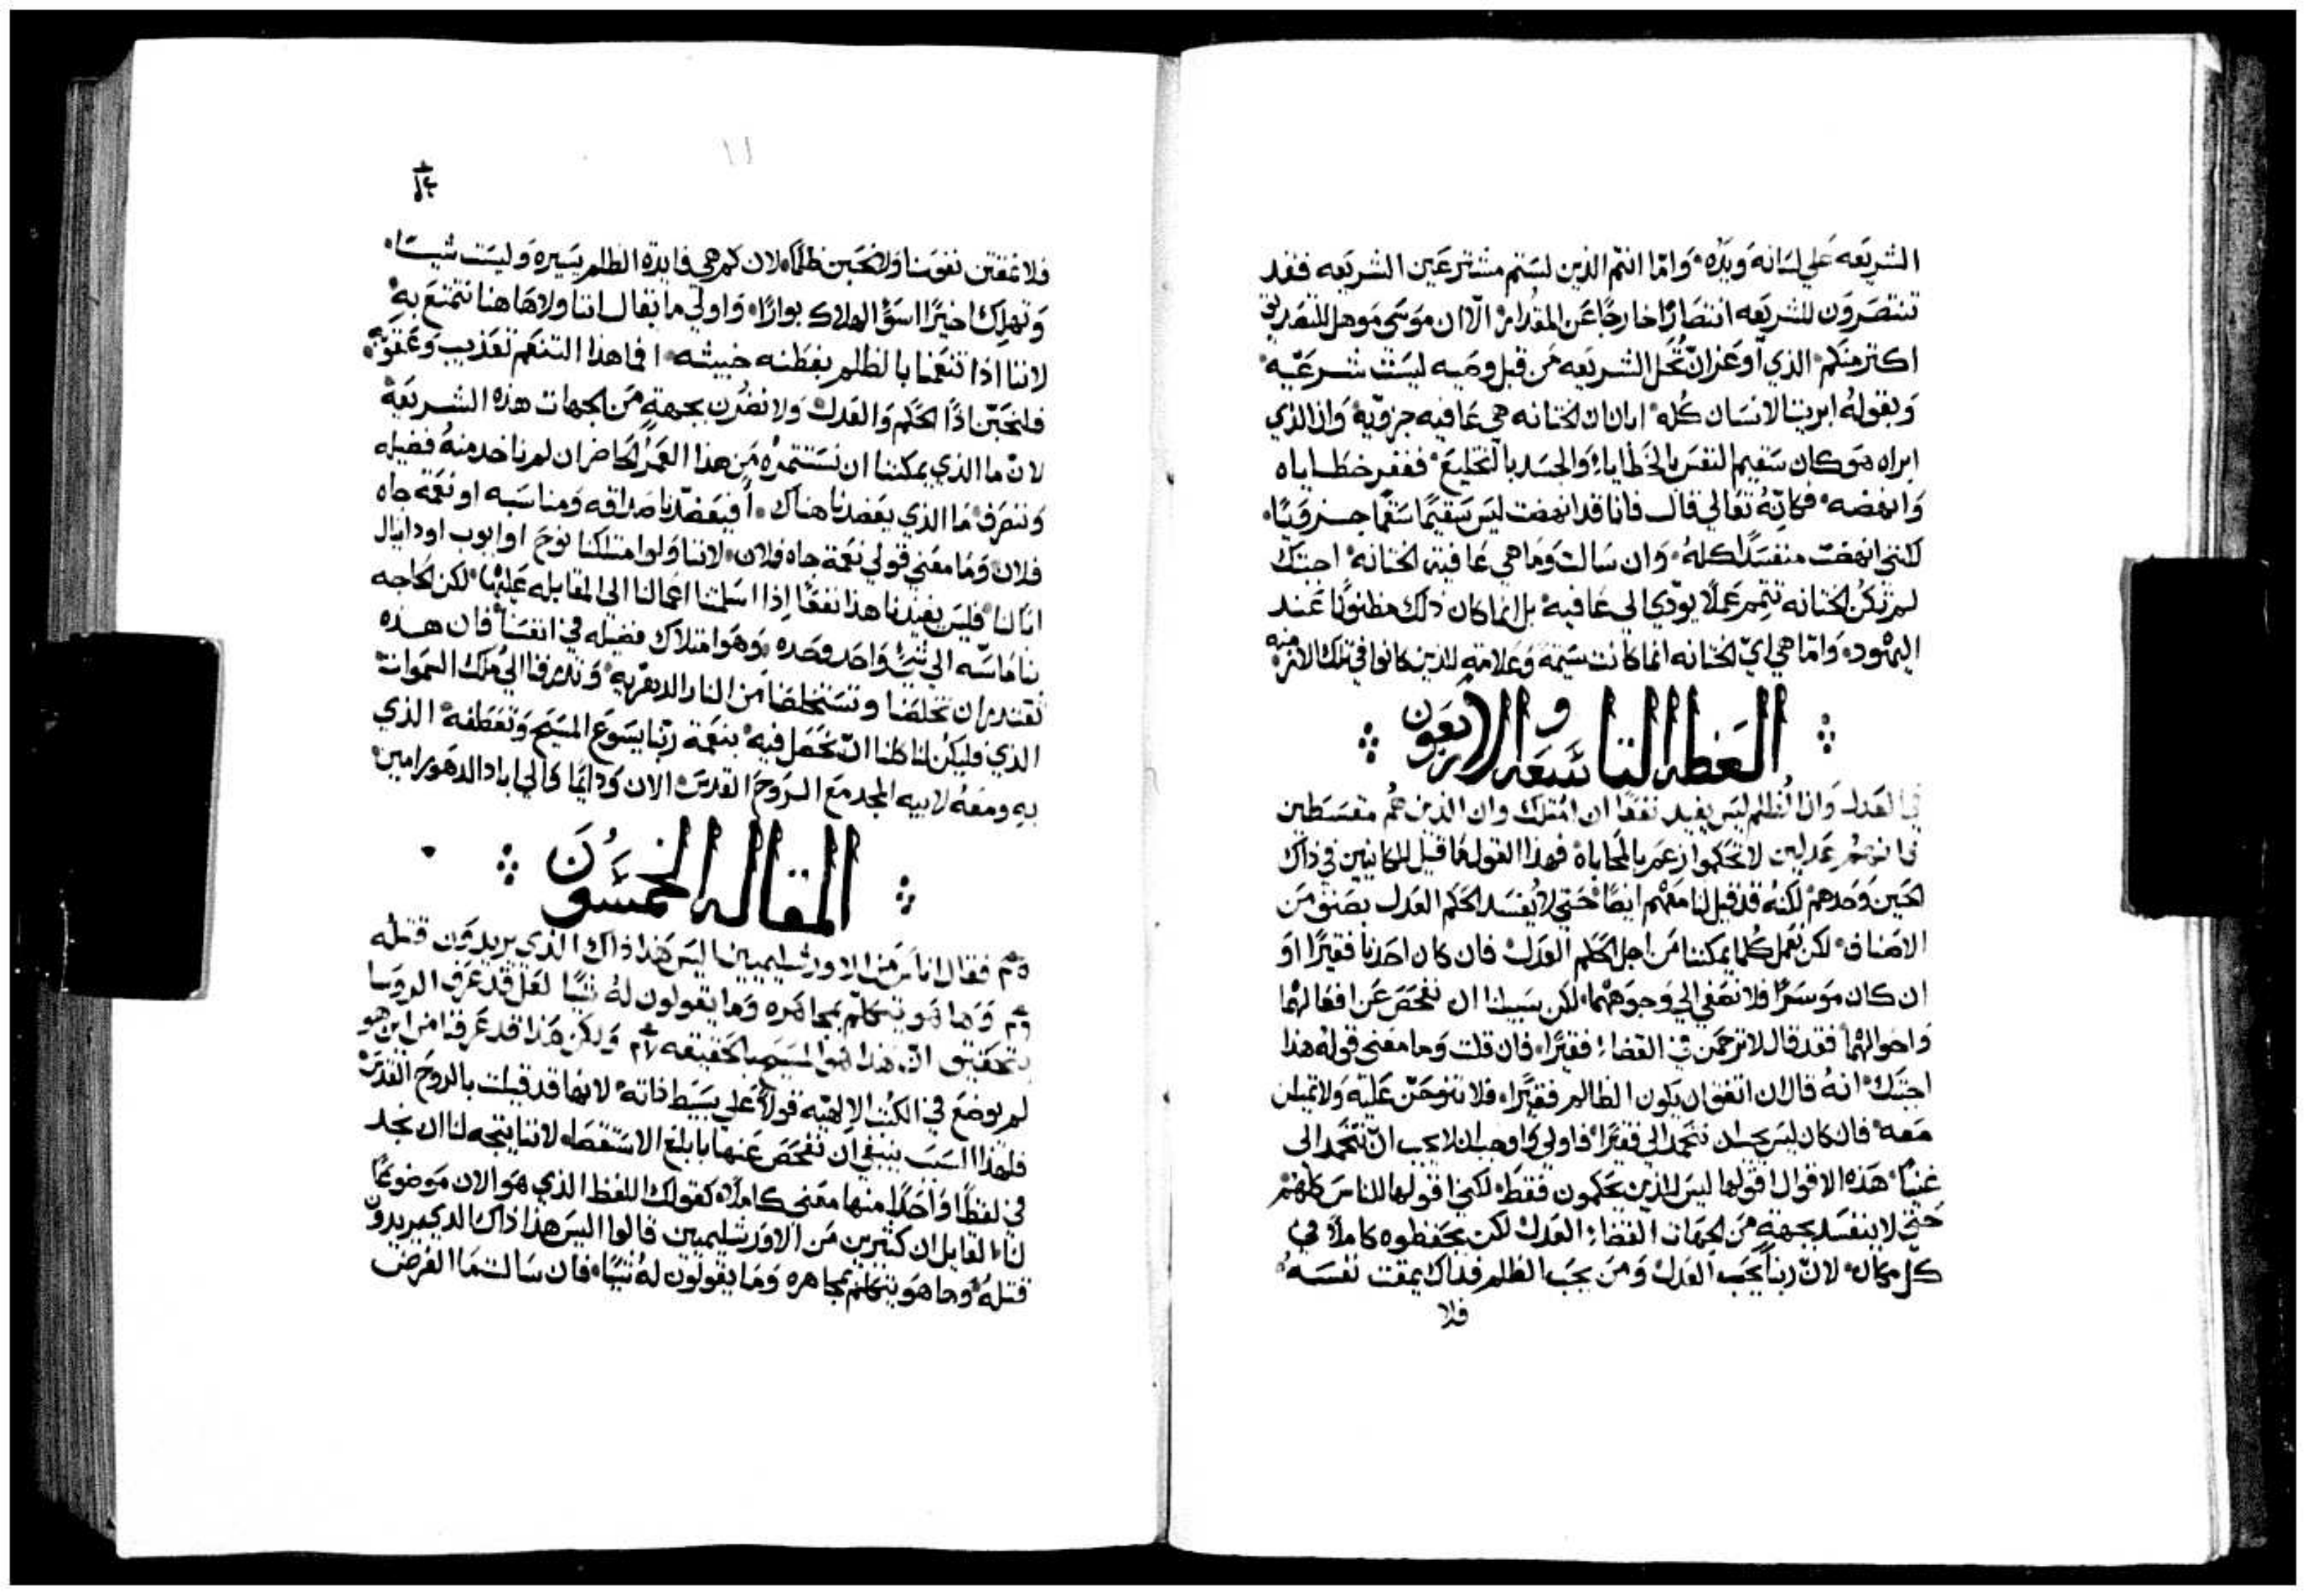 الشريعه على لسانه ويده، واما انتم الذين لستم مشترعين الشريعه فقد
تنتصرون للشريعه انتصارًا خارجًا عن المقدار، الا ان موسى موهل للتصديق
اكثر منكم، الذي اوعز ان تُحَل الشريعه من قبل وصيه ليست شرعيه
وبقوله ابريت الانسان كله، ابان ان الختانه هي عافيه جزويه، وان الذي
ابراه هو كان سقيم النفس بالخطايا، والجسد بالتخليع، فغفر خطاياه
وانهضه، فكانه تعالي قال فانا قد انهضت ليس سقيمًا سقمًا جزويًا،
لكنني انهضت منفسدًا كله، وان سالت وما هي عافية الختانه، اجبتك
لم تكن الختانه تتمم عملًا يودي الى عافيه، بل انما كان ذلك مظنونًا عند
اليهود، واما هي اي الختانه انما كانت سمة وعلامة للذين كانوا في تلك الازمنه
العظه التاسعه والاربعون
في العدل وان الظلم ليس يفيد نفعًا ان امتلك وان الذين هم مقسطين
لا تحكموا زعم بالمحاباة فهذا القول ما قيل للكاينين في ذاك
الحين وحدهم لكنه قد قيل لنا معهم ايضًا، حتى لا يُفسد الحكم العدل بصنف من
الاصناف، لكن نعمل كلما يمكننا من اجل الحكم العدل، فان كان احدنا فقيرًا او
ان كان موسرًا فلا نصغي الي وجوههما، لكن سبيلنا ان نفحص عن افعالهما
واحوالهما فقد قال لا ترحمن في القضاء فقيرًا، فان قلت وما معنى قوله هذا
اجبتك، انه قال ان اتفق ان يكون الظالم فقيرًا، فلا تنوحن عليه ولا تميلن
معه، فان كان ليس يجب ان نتحمد الي فقيرًا، فاولي واوجب ان لا يجب ان نتحمد الى
غنيًا، هذه الاقوال اقولها ليس للذين يحكمون فقط، لكني اقولها للناس كلهم
حتى لا ينفسد بجهة من الجهات القضاء العدل لكن يحفظوه كاملًا في
كل مكان، لان ربنا يحب العدل ومن يحب الظلم فذاك يمقت نفسه،
فلا
فلا نمقتن نفوسنا ولا نحبن ظلمًا، لان كم هي فايدة الظلم يسيره وليست شيًا،
وتهلك اخيرًا اسوَّ الهلاك بوارًا، واولي ما يقال اننا ولا هاهنا نتمتع به
لاننا اذا تنعمنا بالظلم بفطنه خبيثه، افما هذا التنعم تعذيب وعقوبه،
فلنحبن اذًا الحكم والعدل، ولا نضُدن بجهة من الجهات هذه الشريعة
لان ما الذي يمكننا ان نستثمره من هذا العمر الحاضر ان لم ناخد منه فضيله
وننصرف، ما الذي يعضدنا هناك، أفيعضدنا صداقه ومناسبه او نعمة جاه
فلان، وما معنى قولي نعمة جاه فلان، لاننا ولو امتلكنا نوح او ايوب او دانيال
ابًا لنا، فليس يفيدنا هذا نفعًا اذا اسلمتنا اعمالنا الى المقابله عليها، لكن الحاجه
بنا ماسه الى شيءٍ واحد وحده، وهو امتلاك فضيله في انفسنا، فان هذه
تقتدر ان تخلصنا وتستخلصنا من النار الدهريه، وترفنا الي ملك السموات
الذي فليكن لنا كلنا ان نحصل فيه، بنعمة ربنا يسوع المسيح وتعطفه، الذي
به ومعه لابيه المجد مع الروح القدس، الان ودايمًا والي اباد الدهور امين،
المقاله الخمسون
فقال اناس من الاورشليميين اليس هذا ذاك الذي يريدون قتله
وها هو يتكلم بمجاهره وما يقولون له شيًا لعل قد عرف الروسا
بتحقيق ان هذا هو المسيح بالحقيقه ولكن هذا قد عرفنا من اين هو
لم يوضع في الكتب الالهيه قولًا على بسيط ذاته، لانها قد قيلت بالروح القدس
فلهذا السبب ينبغي ان نفحص عنها بابلغ الاستقصا، لاننا يتجه لنا ان نجد
في لفظًا واحدًا منها معنى كاملًا، كقولك اللفظ الذي هو الان موضوعًا
لنا، القايل ان كثيرين من الاورشليميين قالوا اليس هذا ذاك الذي يريدون
قتله، وها هو يتكلم بمجاهره وما يقولون له شيًا، فان سالت ما الغرض